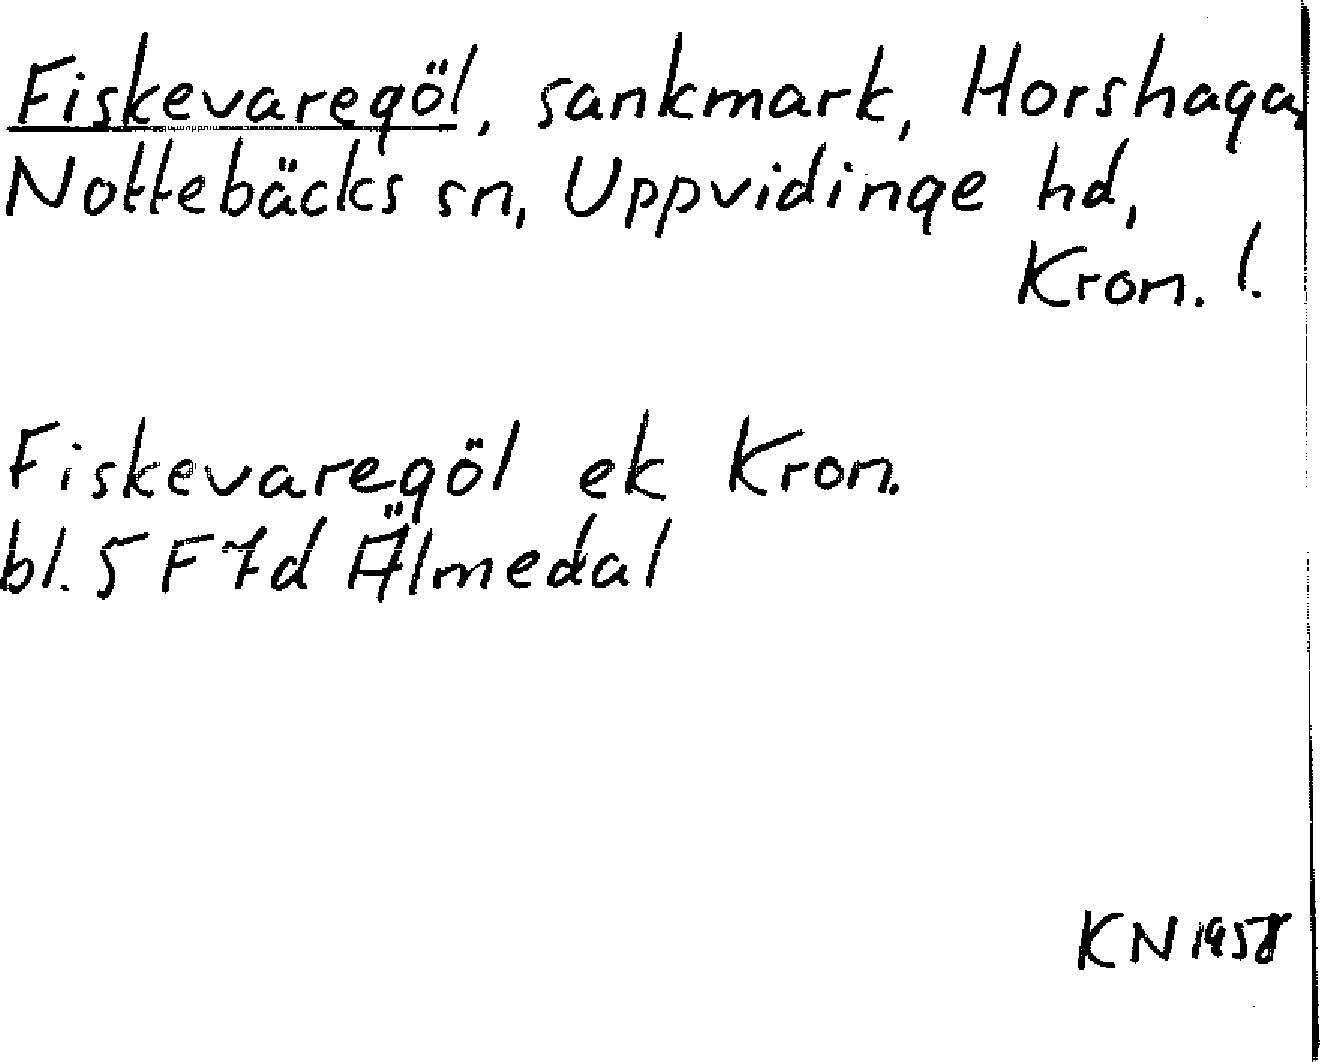 Fiskevaregöl, sankmark, Horshaga,
Nottebäcks sn, Uppvidinge hd,
Kron. !.
Fiskevaregöl ek Kron.
bl. 5 F 7d Älmedal
KN 1958